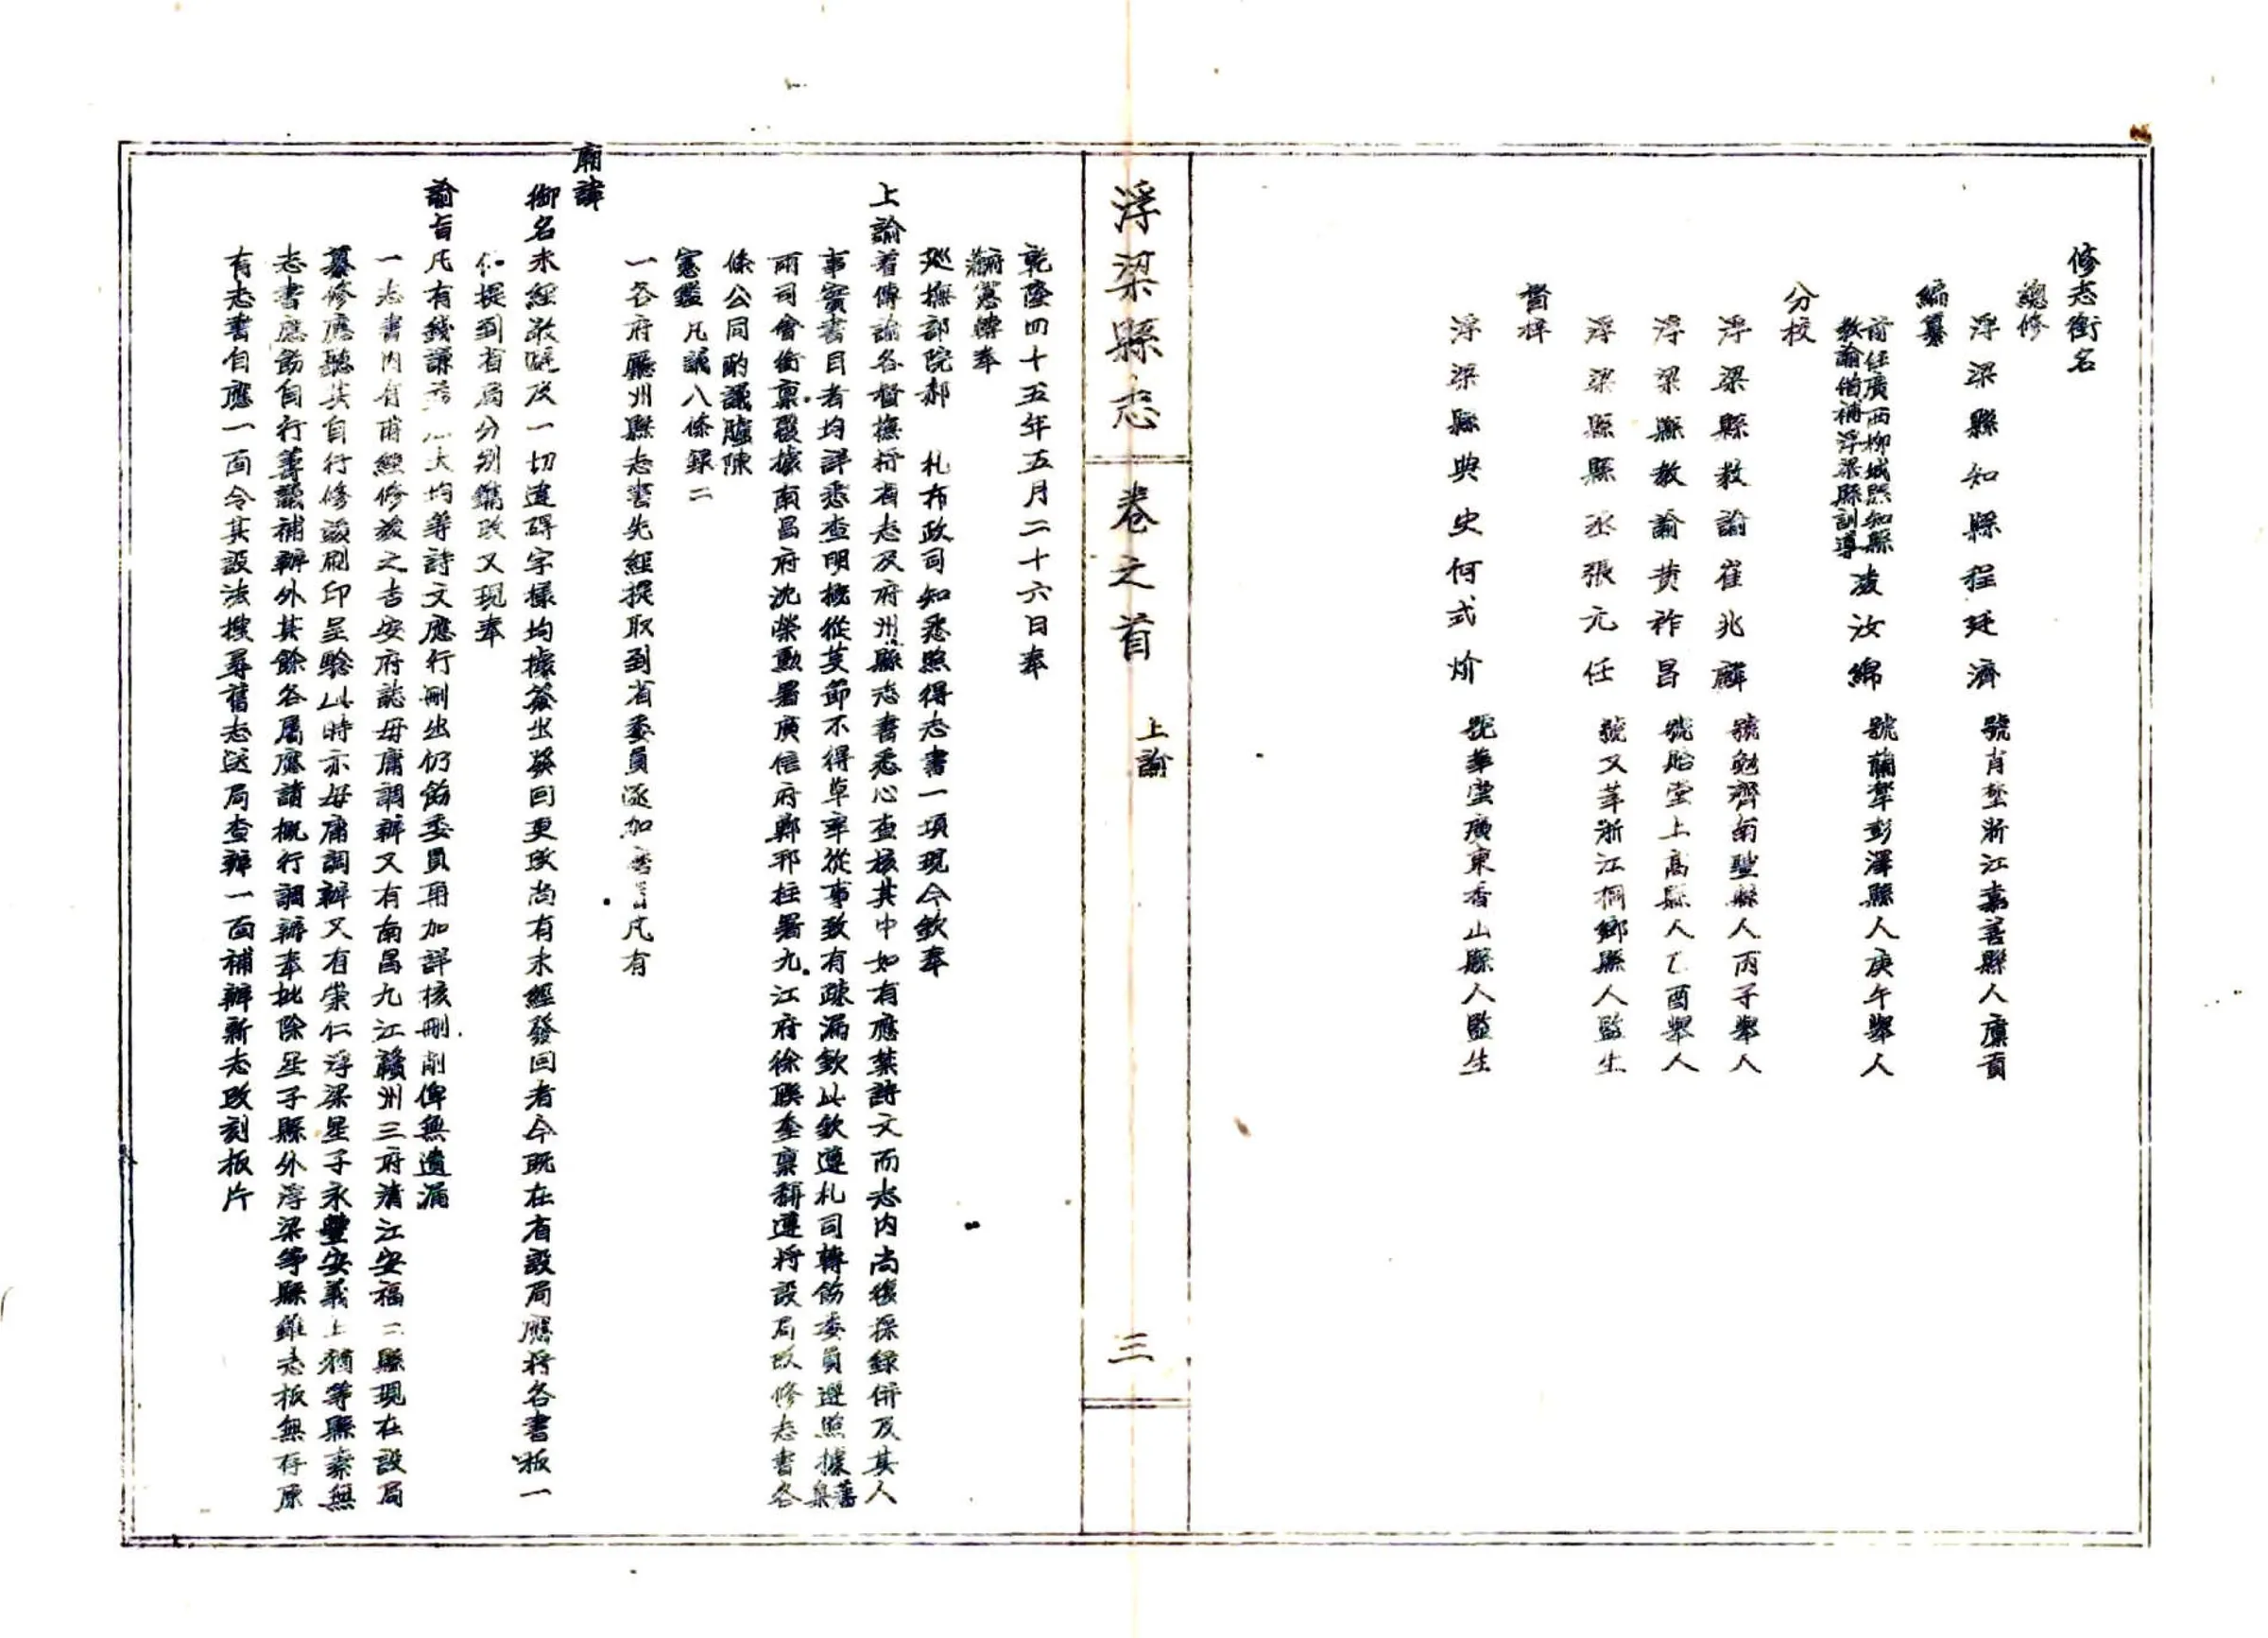 修志銜名
總修
浮梁縣知縣程廷濟 號肖埜浙江嘉善縣人廩貢
編纂
前任廣西柳城縣知縣教諭借補浮梁縣訓導凌汝綿 號蘭犂彭澤縣人庚午舉人
分校
浮梁縣教諭崔兆麟 號勉齋南豐縣人丙子舉人
浮梁縣教諭黃祚昌 號貽堂上高縣人乙酉舉人
浮梁縣縣丞張元任 號又苹浙江桐鄉縣人監生
督梓
浮梁縣典史何式炌 號華雲廣東香山縣人監生
浮梁縣志 卷之首 上諭 三
乾隆四十五年五月二十六日奉
府憲轉奉
廵撫部院郝 札布政司知悉照得志書一項現今欽奉
上諭着傳諭各督撫將省志及府州縣志書悉心查核其中如有應禁詩文而志內尚復採錄併及其人
事實書目者均詳悉查明概從芟節不得草率從事致有疎漏欽此欽遵札司轉飭委員遵照據藩臬
兩司會銜稟覆據南昌府沈榮勳署廣信府鄭邦柱署九江府徐聯奎稟稱遵將設局改修志書各
條公同酌議臚陳
憲鑑 凡議八條錄二
一各府廳州縣志書先經提取到省委員逐加 凡有
廟諱
御名未經敬避及一切違碍字樣均據簽出發回更改尚有未經發回者今既在省設局應將各書板一
仁提到省局分别鏟改又現奉
諭旨凡有錢謙 大均等詩文應行刪出仍飭委員再加詳核刪削俾無遺漏
一志書內有甫經修竣之吉安府誌毋庸調辦又有南昌九江贛州三府清江安福二縣現在設局
纂修應聽其自行修竣刷印呈騐此時亦毋庸調辦又有崇仁浮梁星子永豐安義上猶等縣素無
志書應飭自行籌議補辦外其餘各屬應請概行調辦奉批除星子縣外浮梁等縣雖志板無存原
有志書自應一面令其設法搜尋舊志送局查辦一面補辦新志改刻板片